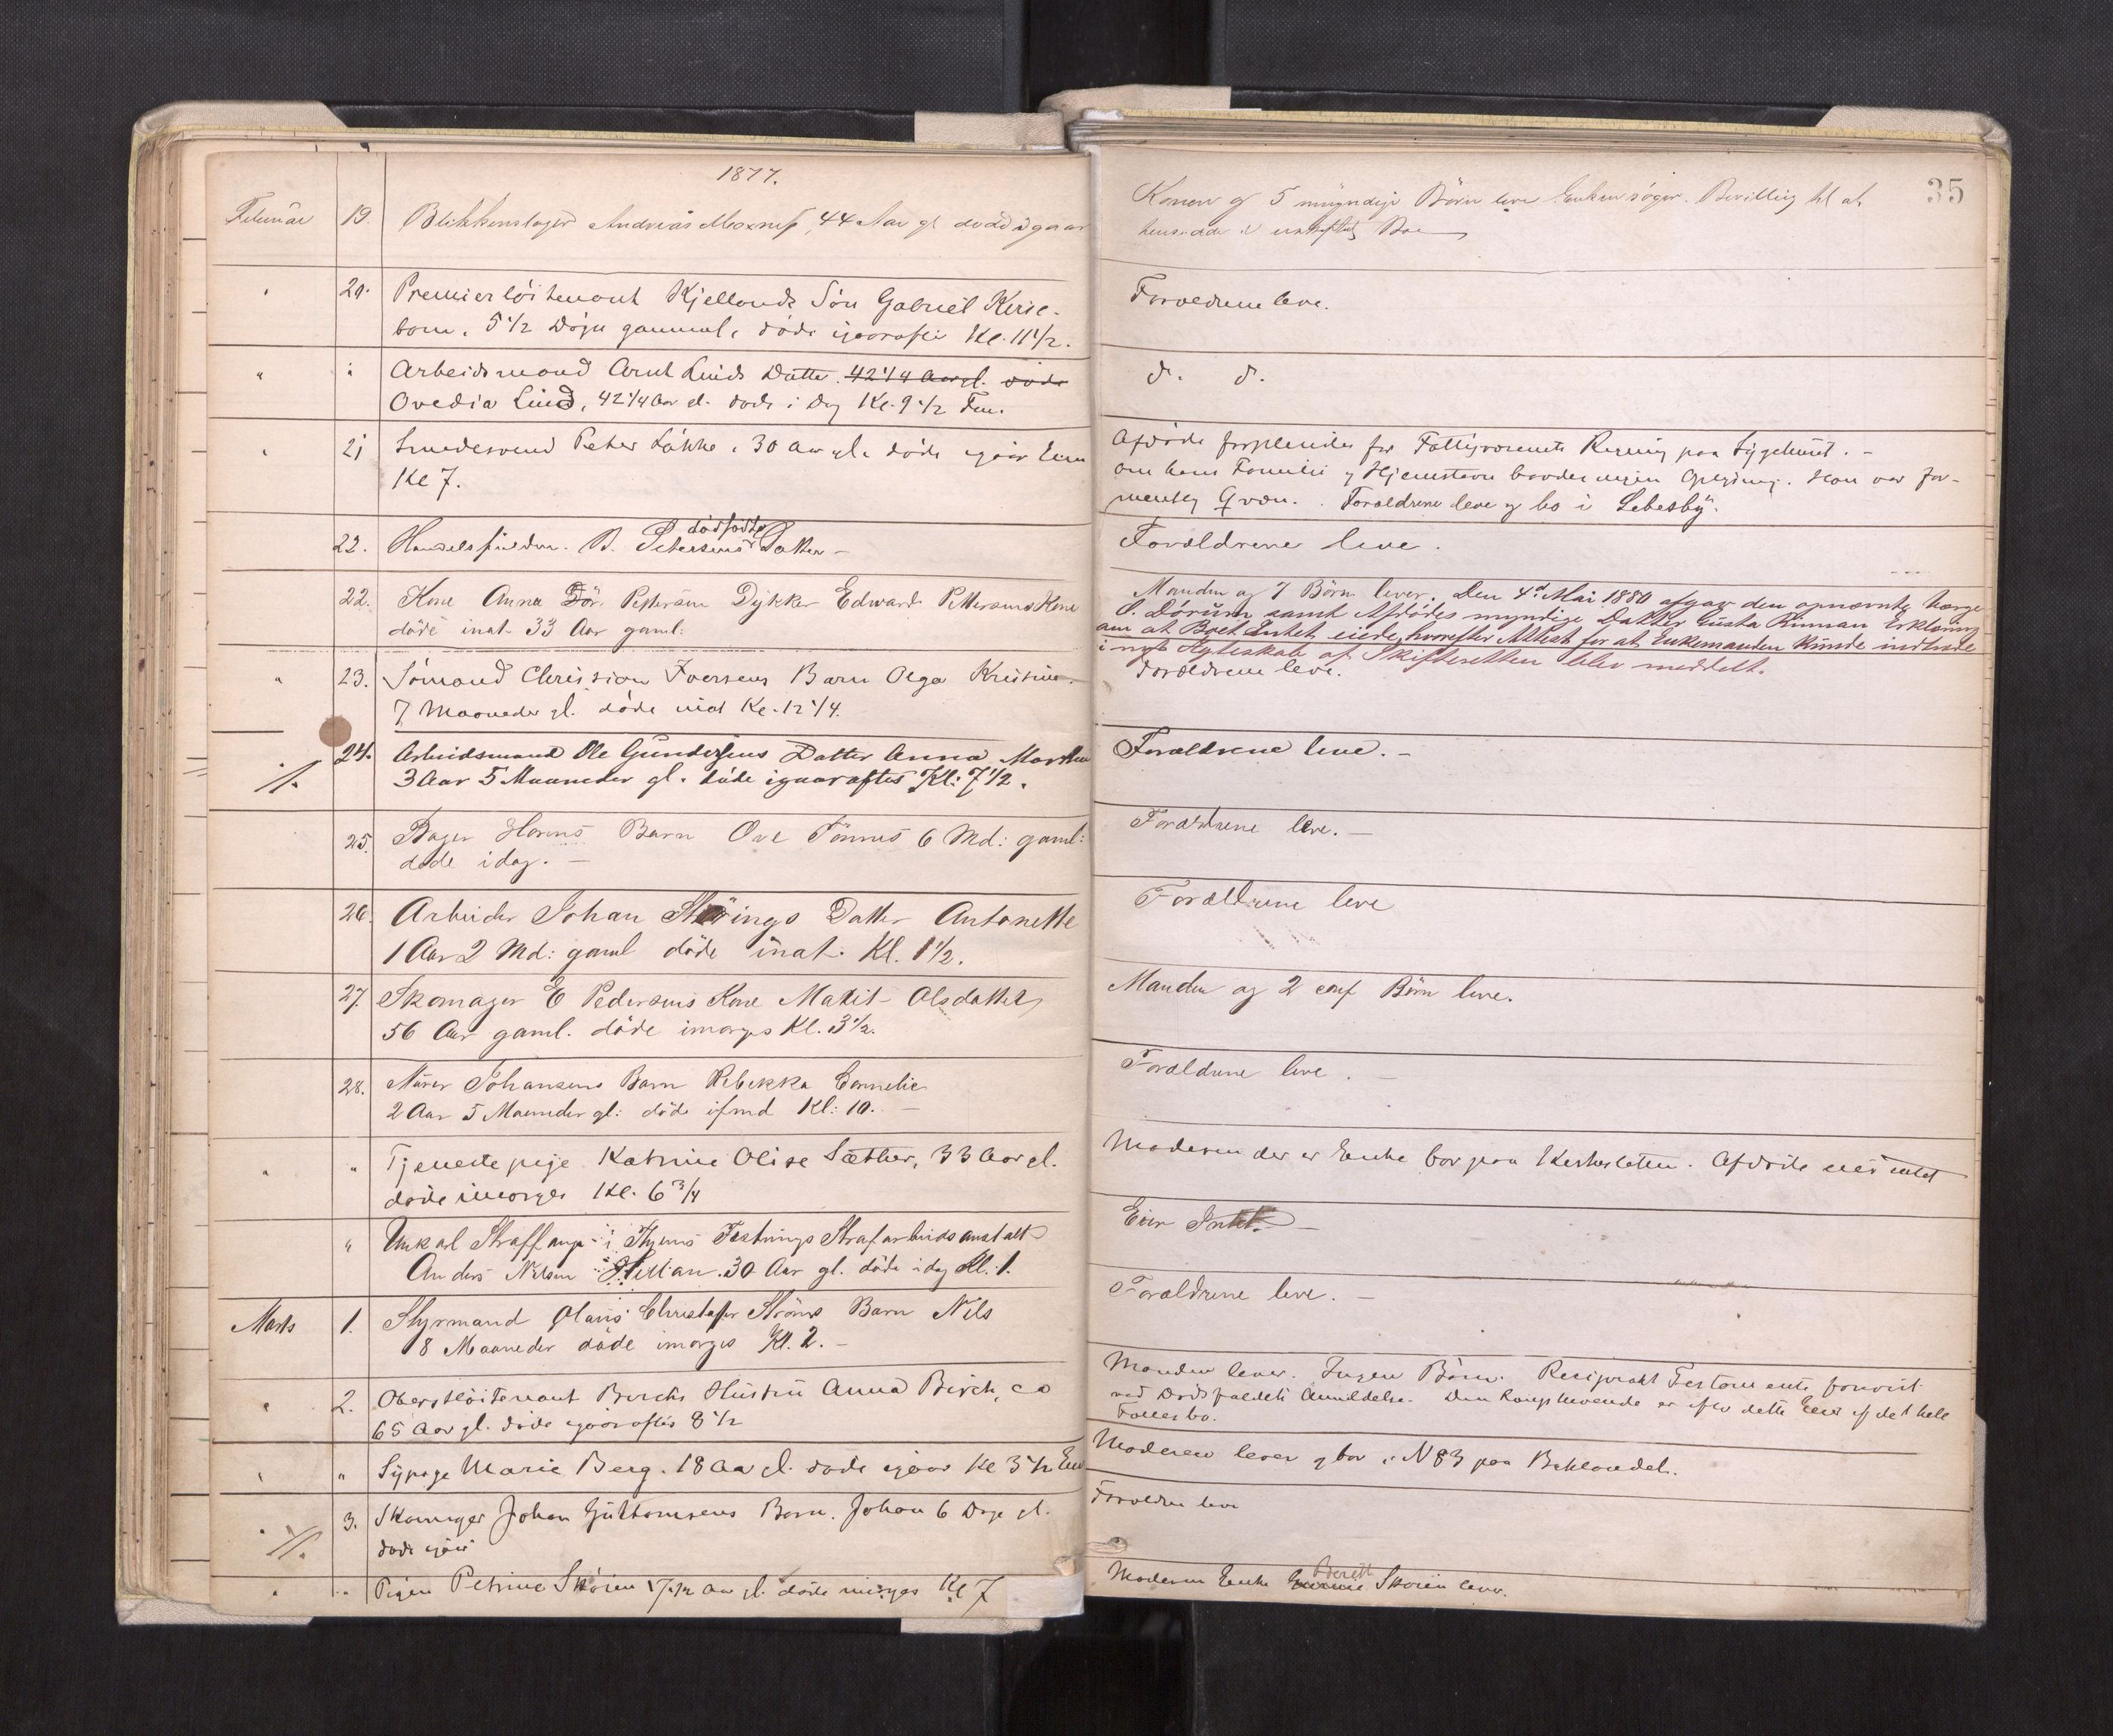 1877.
35
Februar 19. Blikkenslager Andreas Moxness, 44 Aar gl døde igaar
Konen og 5 umyndige Børn leve Enken søger Bevilling til at
hensidde i uskiftet Bo
" 20. Premierlöitenant Kjellands Sön Gabriel Kirie-
born, 5 1/2 Döгn gammel, döde igaaraftes Kl. 11 1/2.
Forældrene leve.
" " Arbeidsmand Arnt Linds Datter. 42 1/4 Aar gl. döde
Ovedia Lind, 42 1/4 Aar gl. döde i Dag Kl. 9 1/2 Fm.
d. d.
" 21 Smedesvend Peter Låkke, 30 Aar gl. döde igaar Em
Kl 7.
Afdöde forpleiedes for Fattigvæsenets Regning paa Sygehuset. -
Om hans Familie og Hjemstavn havdes ingen Oplysning. Han var for-
mentlig Qvæn. Forældrene leve og bo i Lebesby.
22. Handelsfuldm. B. Petersens dödfödte Datter -
Forældrene leve.
22. Kone Anna Dor. Pettersen Dykker Edward Pettersens Kone
döde inat 33 Aar gaml:
Manden og 7 Börn lever. Den 4de Mai 1880 afgav den opnævnte Værge
O. Dörum samt Afdödes myndige Datter Gusta Rinnan Erklæring
om at Boet Intet eiede, hvorefter Attest for at Enkemanden kunde indtræde
i nyt Ægteskab af Skifteretten blev meddelt.
" 23. Sömand Christian Iversens Barn Olga Kristine
7 Maaneder gl. döde inat Kl. 12 1/4.
Forældrene leve.
24. Arbeidsmand Ole Gundersens Datter Anna Marthe
3 Aar 5 Maaneder gl. döde igaaraftes Kl: 7 1/2.
Forældrene leve. -
25. Bager Horns Barn Ove Tönnes 6 Md: gaml:
döde idag. -
Forældrene leve. -
26. Arbeider Johan Störings Datter Antonette
1 Aar 2 Md: gaml döde inat. Kl. 1 1/2.
Forældrene leve
27. Skomager E Pedersens Kone Marit Olsdatter
56 Aar gaml. döde imorges Kl. 3 1/2.
Manden og 2 conf Börn leve.
28. Murer Johansens Barn Rebekka Cornelie
2 Aar 5 Maaneder gl: döde ifmd Kl: 10. -
Forældrene leve. -
" " Tjenestepige Katrine Olise Sæther, 33 Aar gl.
döde imorges Kl. 6 3/4
Moderen der er Enke bor paa Kirkesletten. Afdöde eied intet
" Unkarl Straffange i Thjems Fæstnings Strafarbeidsanstalt
Anders Nilsen 30 Aar gl. döde idag Kl. 1.
Eier Intet. -
Marts 1. Styrmand Olaus Christofer Ströms Barn Nils
8 Maaneder döde imorges Kl. 2. -
Forældrene leve. -
" 2. Oberstlöitenant Birchs Hustru Anna Birch, ca
65 Aar gl. döde igaaraftes 8 1/2
Manden lever. Ingen Börn. Reciprokt Testamente forevist
ved Dödsfaldets Anmeldelse. Den Længstlevende er efter dette Eier af det hele
Fællesbo.
" " Sypige Marie Berg. 18 Aar gl. döde igaar Kl 3 1/2 Em
Moderen lever og bor i N 83 paa Baklandet.
" 3. Skomager Johan Guttormsens Barn. Johan 6 Dage gl.
döde igaar
Forældre leve
" " Pigen Petrine Skóien 17 1/2 Aar gl. döde imorges Kl 7
Moderen Enke Berit Skoien lever.